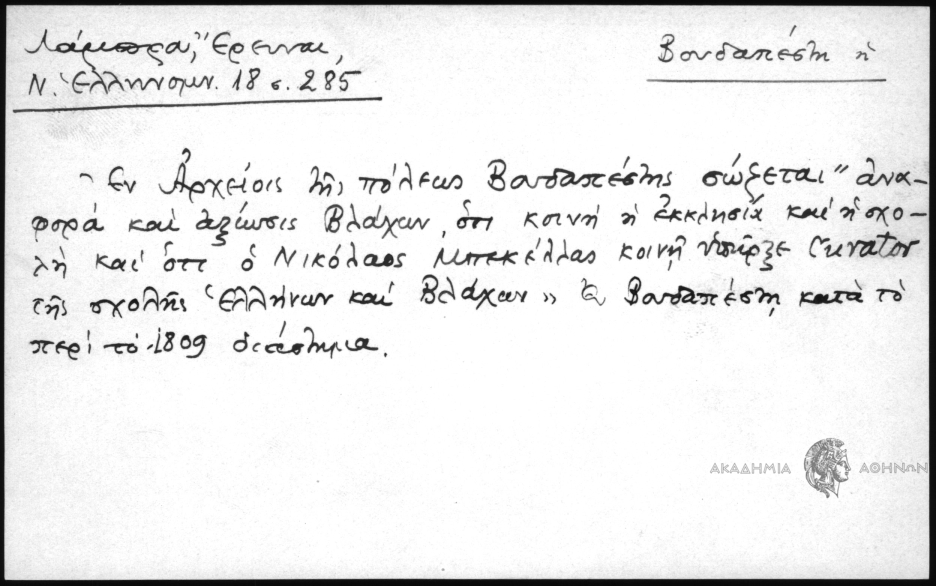 Λάμπρα, Ἔρευναι,
Ν. Ἑλληνομν. 18 σ. 285
Βουδαπέστη ἡ
Ἐν Ἀρχείοις τῆς πόλεως Βουδαπέστης σώζεται "ἀνα-
φορά καὶ ἀξίωσις Βλάχων, ὅτι κοινή ἡ ἐκκλησία καὶ ἡ σχο-
λὴ καὶ ὅτι ὁ Νικόλαος Μπεκέλλας κοινῇ ὑπῆρξε Curator
τῆς σχολῆς Ἑλλήνων καὶ Βλάχων» ἐν Βουδαπέστῃ κατὰ τὸ
περὶ τὸ 1809 διάστημα.
ΑΚΑΔΗΜΙΑ ΑΘΗΝΩΝ